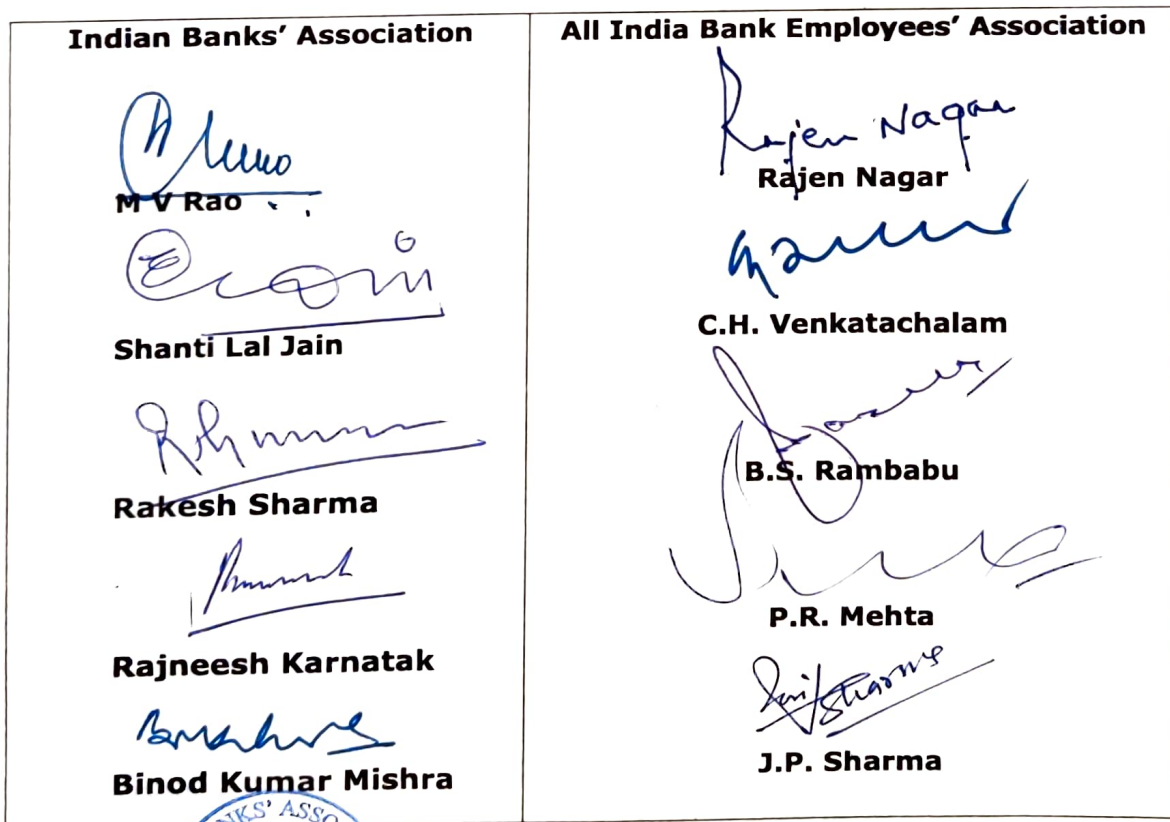 Indian Banks' Association
M V Rao
Shanti Lal Jain
Rakesh Sharma
Rajneesh Karnatak
Binod Kumar Mishra
NKS' ASSO
All India Bank Employees' Association
Rajen Nagar
Rajen Nagar
C.H. Venkatachalam
B.S. Rambabu
P.R. Mehta
J.P. Sharma